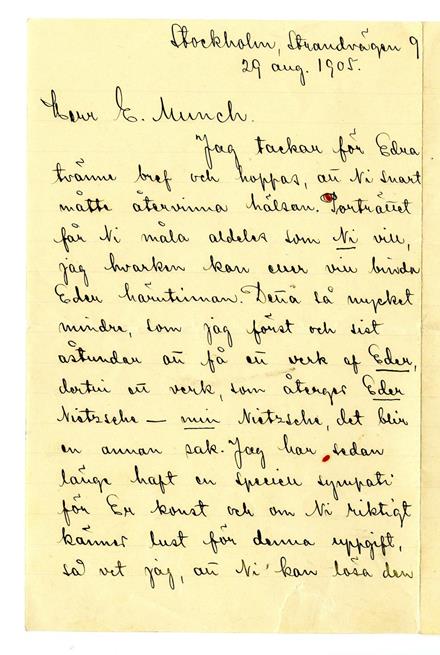 Stockholm, Strandvägen 9
29 aug. 1905.
Herr E. Munch.
Jag tackar för Edra
tvänne bref och hoppas, att Ni snart
måtte återvinna hälsan. Porträttet
får Ni måla aldeles som Ni vill,
jag hvarken kan eller vill binda
Eder härutinnan. Detta så mycket
mindre, som jag först och sist
åstundar att få ett verk af Eder,
dertill ett verk, som återger Eder
Nietzsche — min Nietzsche, det blir
en annan sak. Jag har sedan
länge haft en speciell sympati
för Er konst och om Ni riktigt
känner lust för denna uppgift,
så vet jag, att Ni kan lösa den